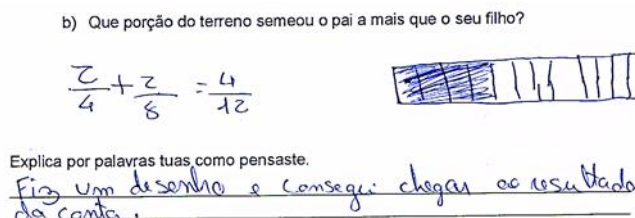 b) Que porção do terreno semeou o pai a mais que o seu filho?
2/4 + 2/8 = 4/12
Explica por palavras tuas como pensaste.
Fiz um desenho e consegui chegar ao resultado
da conta.